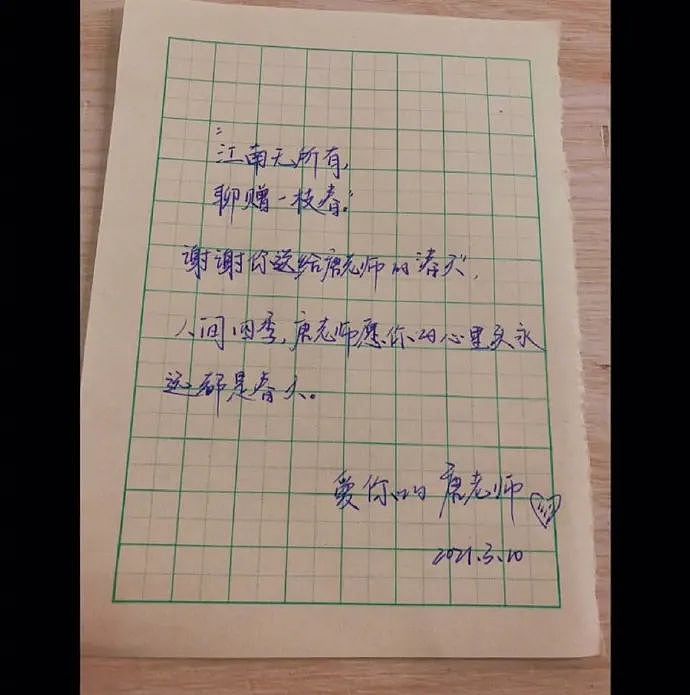 “江南无所有，
聊赠一枝春。”
谢谢你送给唐老师的“春天”，
人间四季，唐老师愿你的心里头永
远都是春天。
爱你的 唐老师
2021.3.10